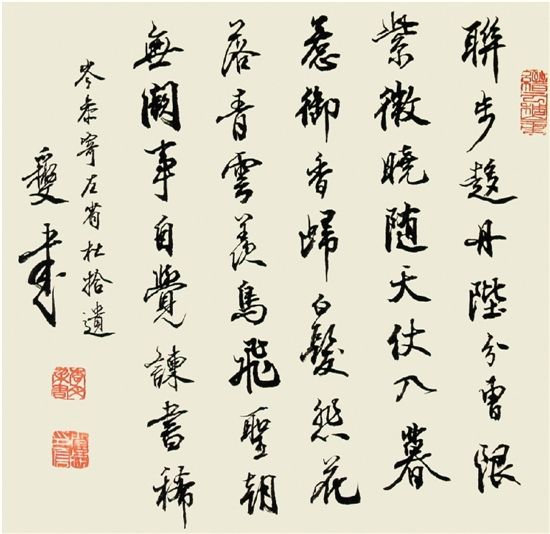 聯步趨丹陛分曹限
紫微曉随天仗入暮
惹御香歸白髮悲花
落青雲羡鳥飛聖朝
無闕事自覺諫書稀
岑參寄左省杜拾遺
書